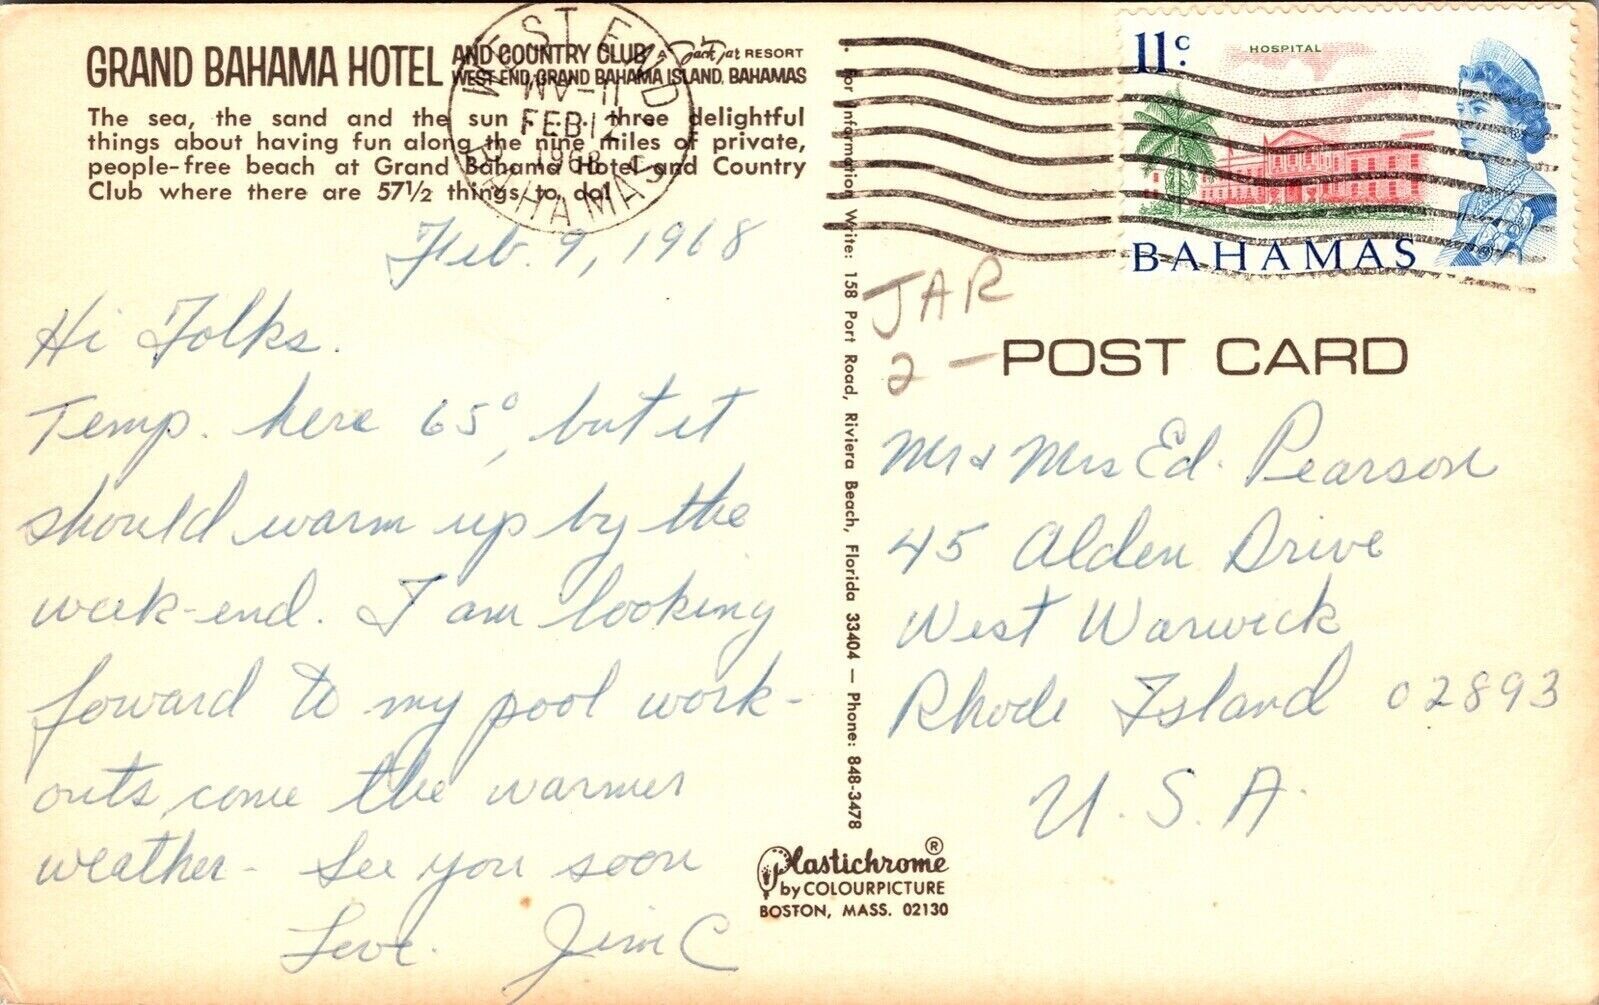 GRAND BAHAMA HOTEL AND COUNTRY CLUB A Jack Tar RESORT
WEST END, GRAND BAHAMA ISLAND, BAHAMAS
The sea, the sand and the sun . . . three delightful
things about having fun along the nine miles of private,
people-free beach at Grand Bahama Hotel and Country
Club where there are 57½ things to do!
WEST END
11-AM
FEB 12
1968
BAHAMAS
Feb. 9, 1968
Hi Folks.
Temp. here 65°, but it
should warm up by the
week-end. I am looking
foward to my pool work-
outs, come the warmer
weather - See you soon
Love. Jim C
For Information Write: 158 Port Road, Riviera Beach, Florida 33404 — Phone: 848-3478
Plastichrome ®
by COLOURPICTURE
BOSTON, MASS. 02130
11c
HOSPITAL
BAHAMAS
JAR
2 -
POST CARD
Mr & Mrs Ed. Pearson
45 Alden Drive
West Warwick
Rhode Island 02893
U. S. A.